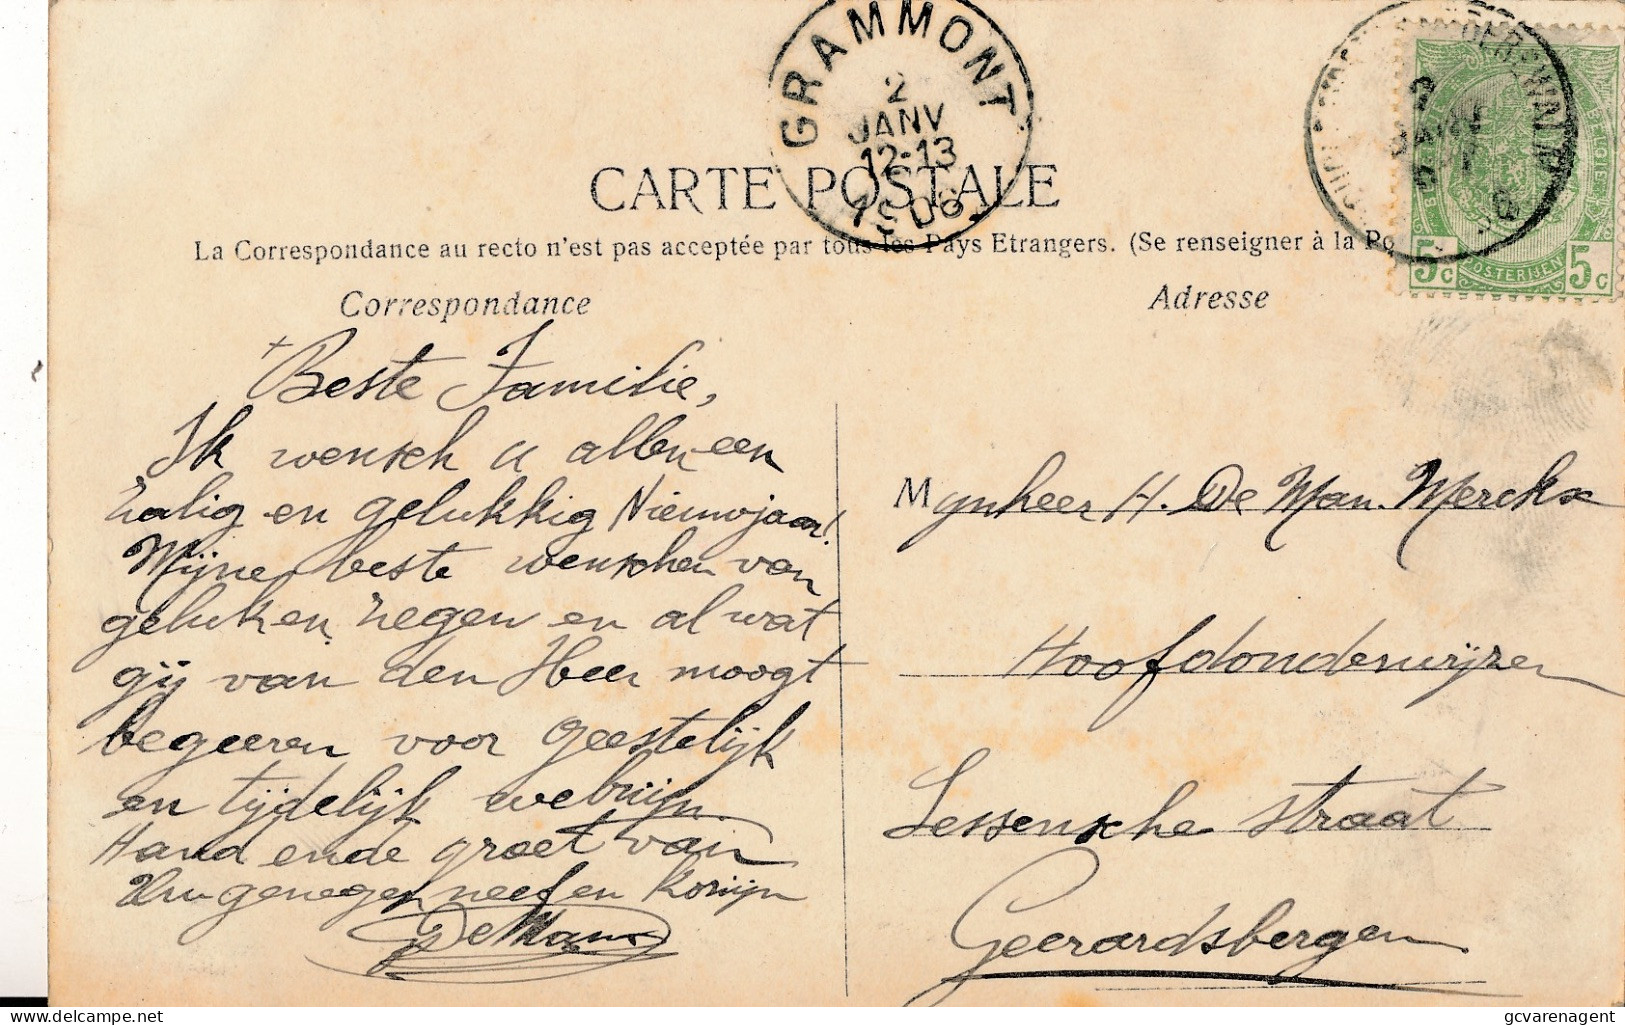 GRAMMONT
2
JANV
12-13
1906
CARTE POSTALE
La Correspondance au recto n'est pas acceptée par tous les Pays Etrangers. (Se renseigner à la
Correspondance
Adresse
5c 5c
Beste Familie,
Ik wensch u allen een
zalig en gelukkig Nieuwjaar!
Mijne beste wenschen van
gelukken, zegen en al wat
gij van den Heer moogt
begeeren voor geestelijk
en tijdelijk welzijn.
Hand ende groet van
Uw genegen neef en Kozijn
De Man
Mynheer H. De Man. Merckx
Hoofdonderwijzer
Lessensche straat
Geerardsbergen
gcvarenagent